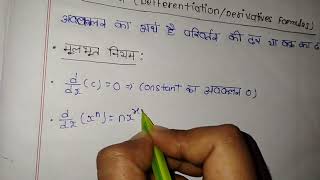 (Defferentiation/Derivatives formulas)
अवकलन का अर्थ है परिवर्तन की दर या वक्र का
• मूलभूत नियम :
• d/dx (c) = 0 ⇒ (constant का अवकलन 0)
• d/dx (xⁿ) = nxⁿ